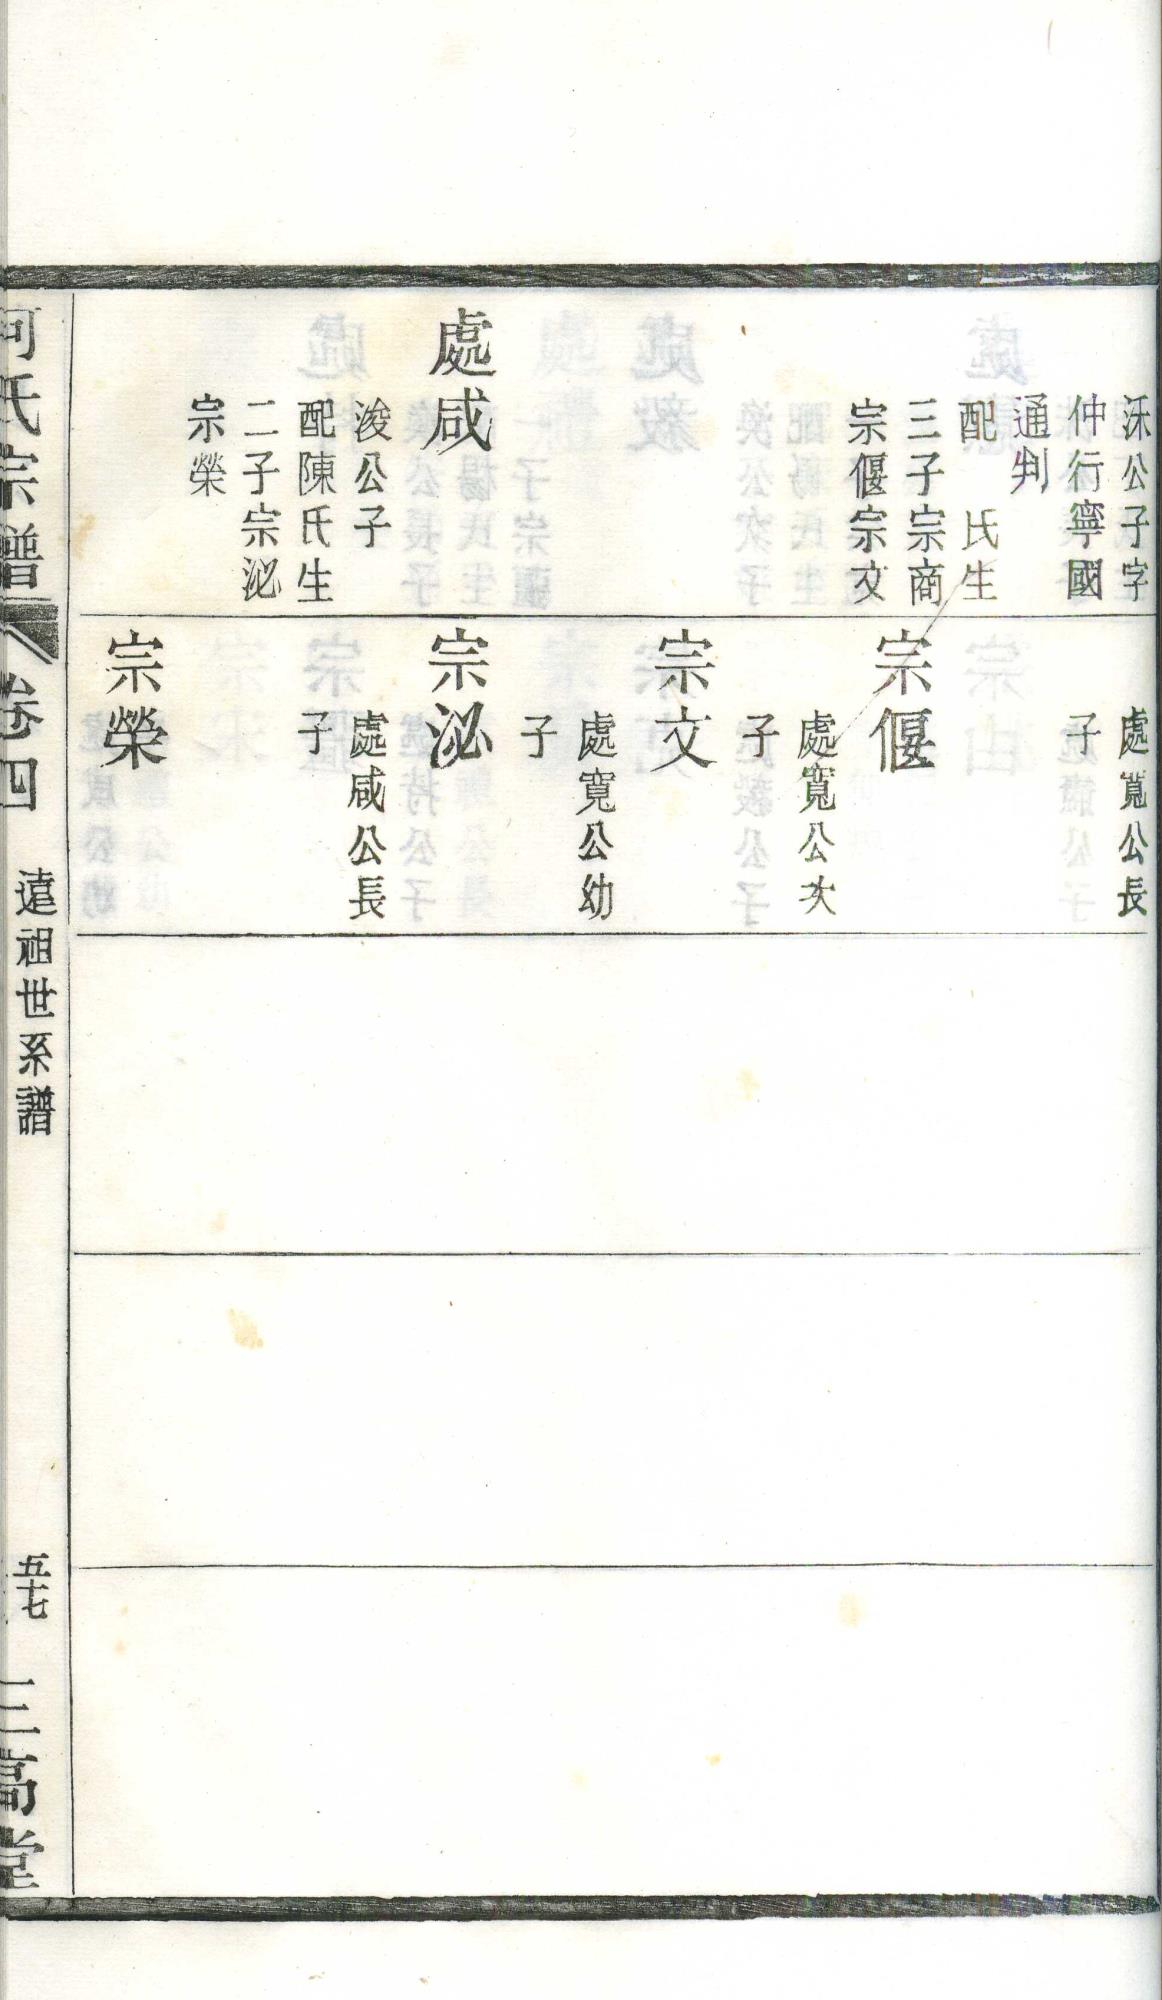 洙公子字
仲行寧國
通判
配　氏生
三子宗商
宗偃宗文
處咸
浚公子
配陳氏生
二子宗泌
宗榮
處寬公長
子
宗偃
處寬公次
子
宗文
處寬公幼
子
宗泌
處咸公長
子
宗榮
何氏宗譜
卷四
遠祖世系譜
五十七
三高堂